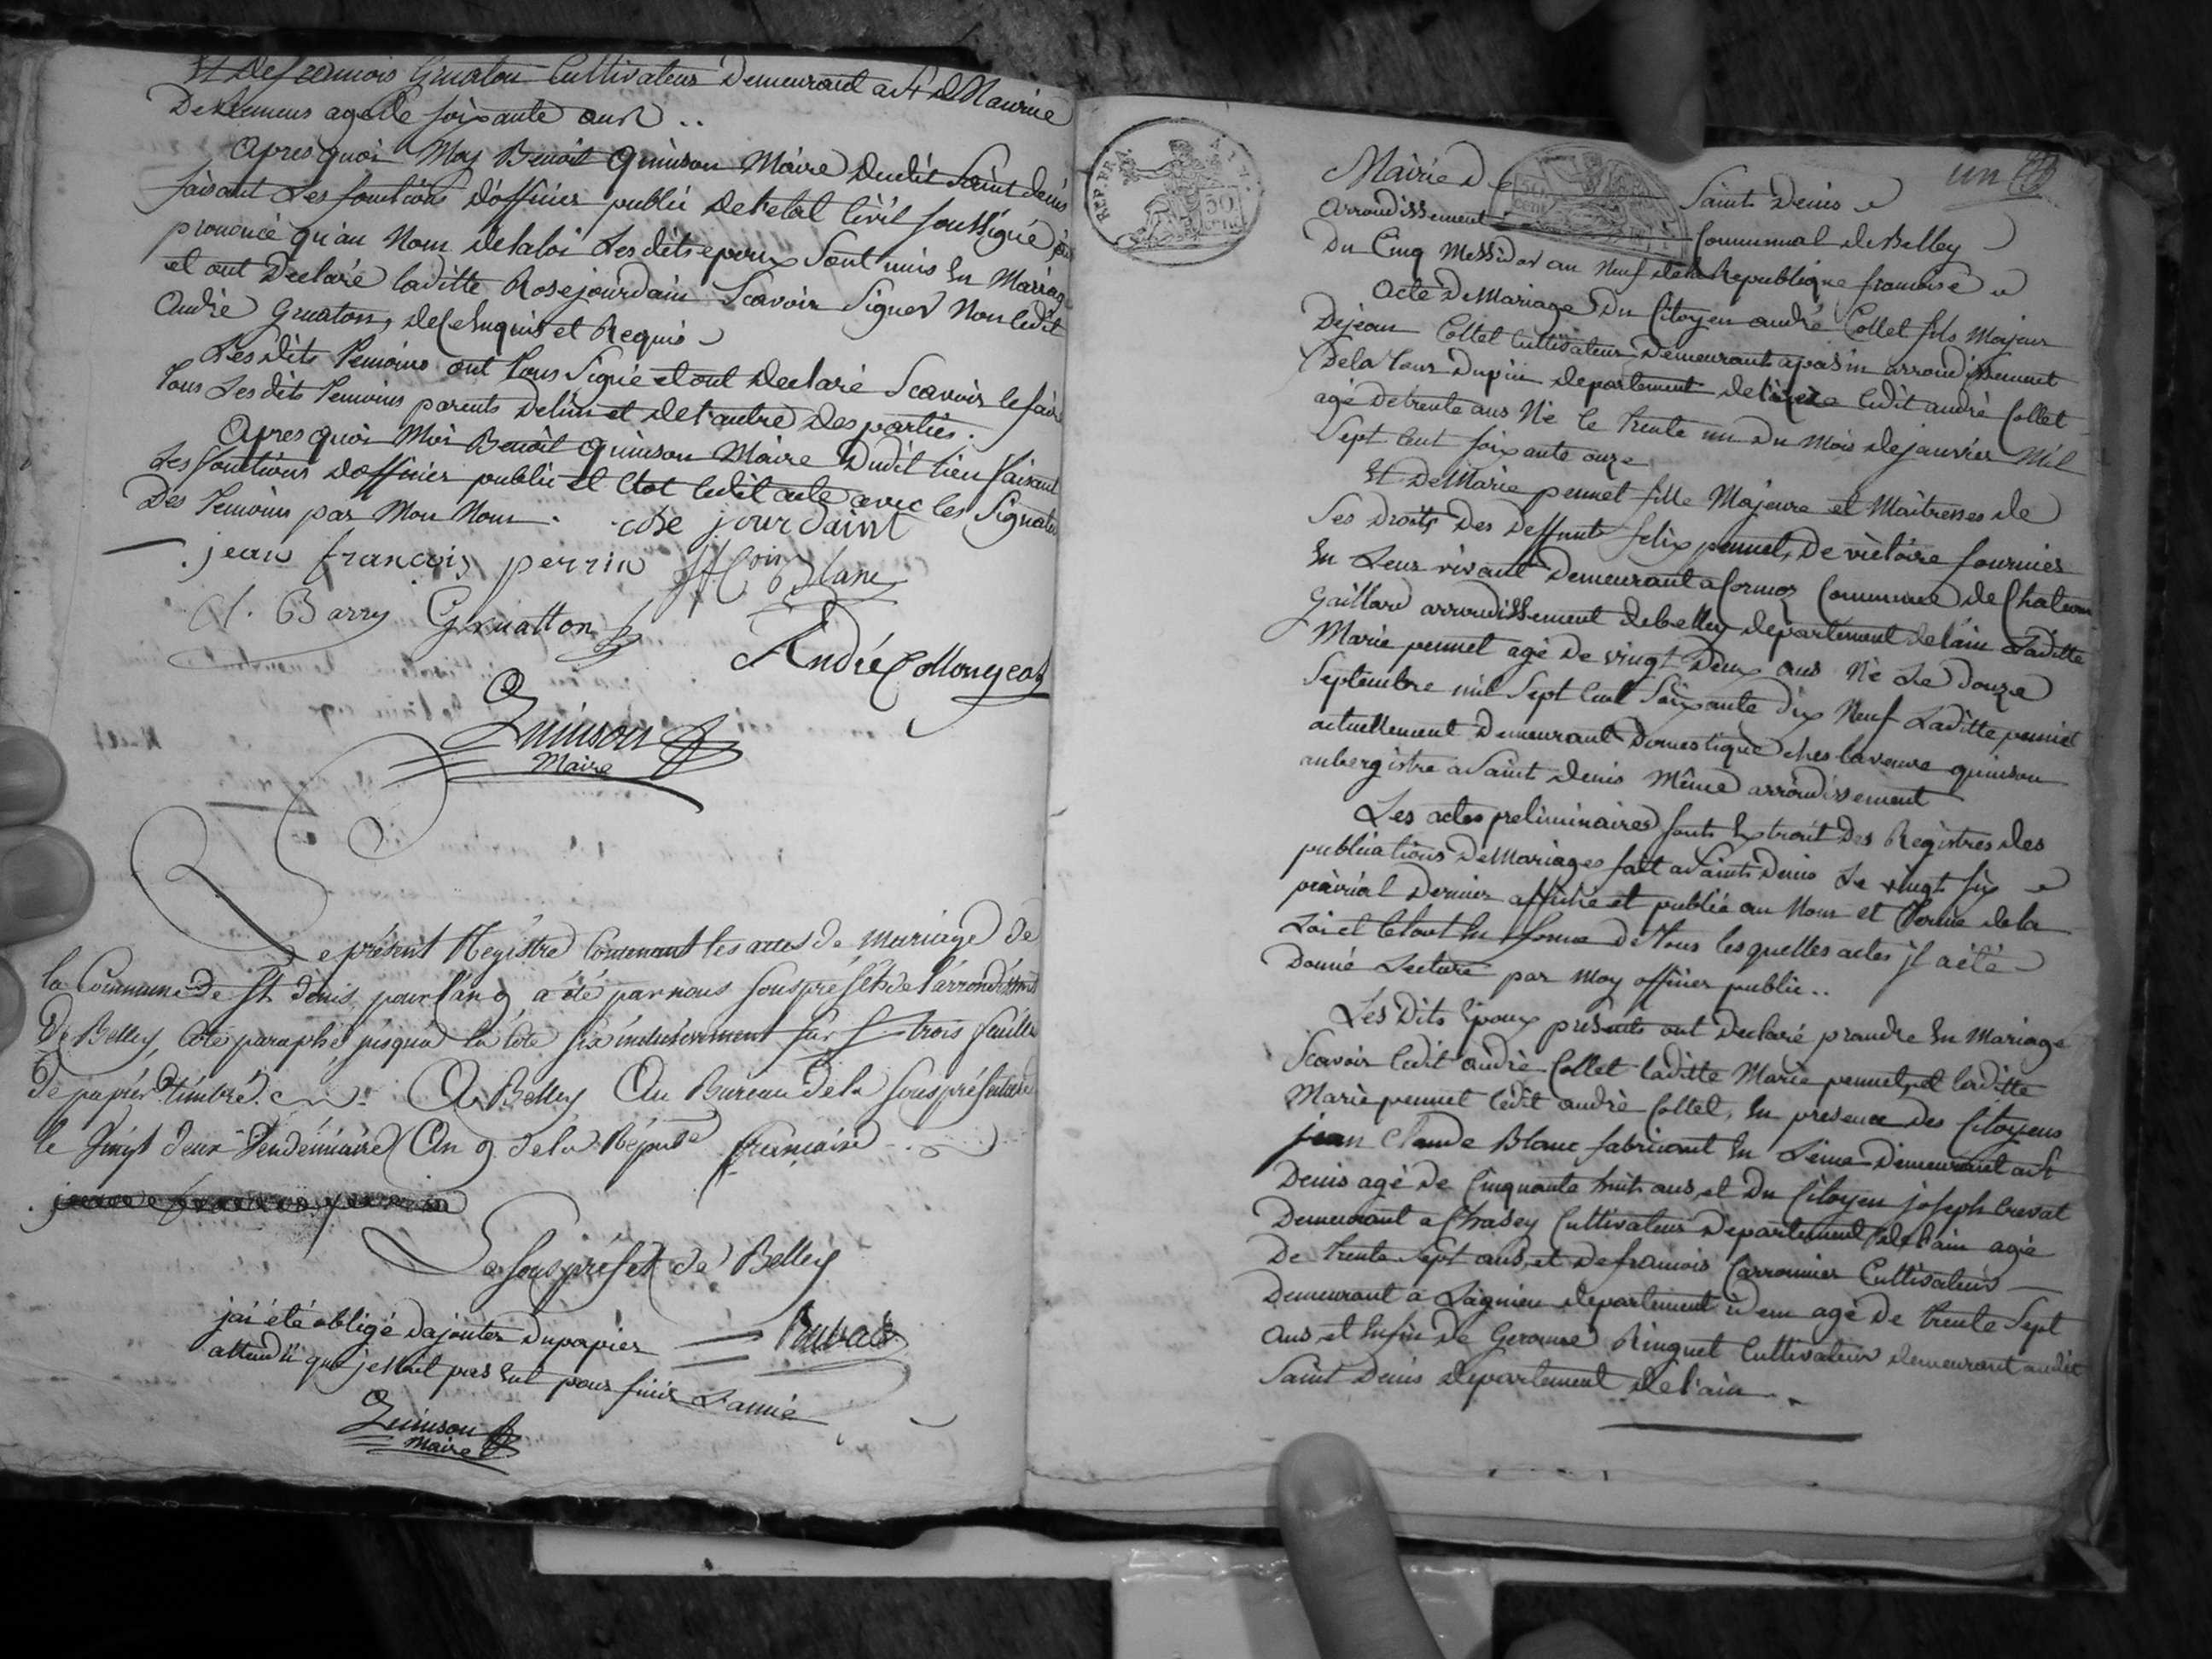 Et de francois Gruaton Cultivateur Demeurant a St de Maurice
De Remens agé de soixante ans ..
Apres quoi Moy Benoit Quinson Maire Dudit Saint denis
faisant Les fonctions d'officier public de l'etat Civil soussigné jai
prononcé qu'au Nom de la loi Les dits epoux Sont unis En Mariage
et ont Declaré laditte Rose jourdain Scavoir Signer Non ledit
André Gruaton, de ce Enquis et Requis
Les dits temoins ont tous Signé et ont declaré Scavoir le faire
tous Les dits temoins parents de l'un et de l'autre des parties.
Apres quoi Moi Benoit Quinson Maire Dudit lieu faisant
Les fonctions d'officier public et Clot ledit acte avec les Signatures
Des temoins par Mon Nom . rose jourdaint
jean françois perrin Blanc
A. Barry Gruatton André Collongeat
Quinson
Maire
Le présent Registre Contenant les actes de mariage de
la Commune de St denis pour l'an 9 a été par nous souspréfet de l'arrondissement
De Belley, côté paraphé, jusqu'a la côte six inclusivement sur trois feuilles
de papier timbré. A Belley Au Bureau de la souspréfecture
le Vingt deux Vendémiaire An 9 de la Répube française
Le souspréfet de Belley
jai été obligé d'ajouter du papier
attendu que je n'ait pas eut pour finir L'année
Quinson
Maire
REP. FRA.
50
CENT
un
Mairie De Saint Denis
Arrondissement Communal de Belley
Du Cinq Messidor an Neuf de la Republique francaise
Acte De Mariage Du Citoyen andré Collet fils Majeur
De jean Collet Cultivateur Demeurant a pasin arrondissement
De la tour Dupin departement de l'isere ledit andré Collet
agé de trente ans Né le trente un Du Mois de janvier Mil
Sept Cent soixante onze
Et De Marie pennet fille Majeure et Maitresses de
Ses Droits Des Deffunts felix pennet, De victoire fournier
En Leur vivant Demeurant a Cormoz Commune de Chateau
Gaillard arrondissement de belley departement de l'ain Laditte
Marie pennet agé De vingt Deux ans Né Le Douze
Septembre mil Sept Cent Soixante dix Neuf Laditte pennet
actuellement Demeurant Domestique ches la veuve quinson
aubergistre a Saint denis Même arrondissement
Les actes preliminaires sont Extrait Des Registres des
publications de Mariages fait a Saint Denis Le vingt six
prairial Dernier affiché et publié au Nom et terme de la
Loi et le tout En forme De tous lesquelles actes jl a été
Donné Lecture par Moy officier public..
Les Dits Epoux presents ont Declaré prandre En Mariage
Scavoir ledit andré Collet laditte Marie pennet, et laditte
Marie pennet ledit andré Collet, En presence des Citoyens
jean Claude Blanc fabricant En Demeurant a St
Denis agé De Cinquante huit ans, et Du Citoyen joseph Crevat
Demeurant a Chasey Cultivateur Departement de l'ain agé
De trente Sept ans, et De francois Carronnier Cultivateur
Demeurant a Lagnieu departement idem agé De trente Sept
ans et Enfin De Gerome Ringuet Cultivateur demeurant audit
Saint Denis departement de l'ain